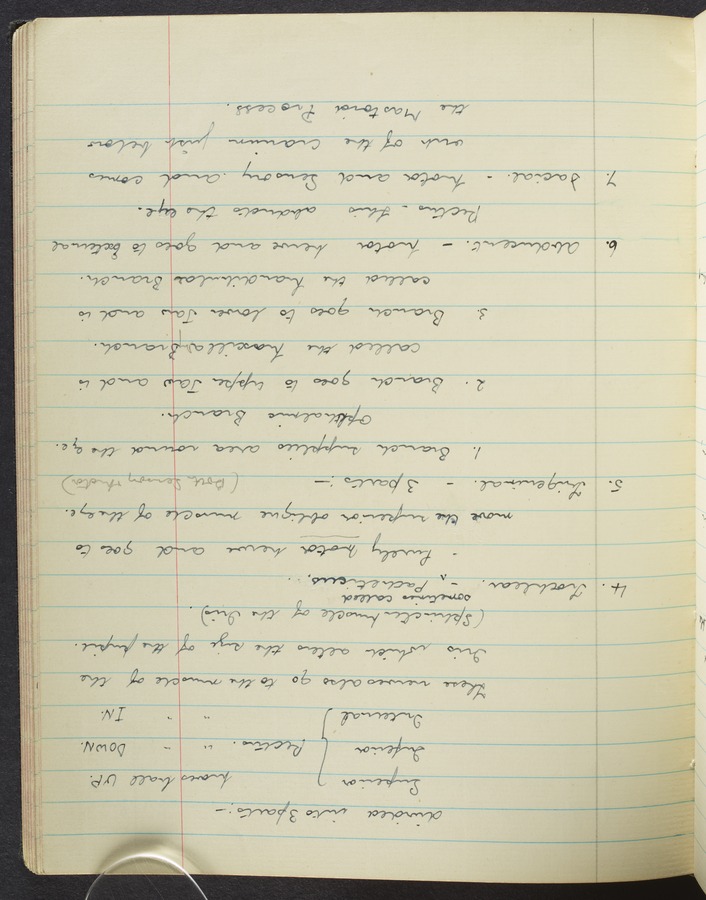 divided into 3 parts :-
Superior } moves ball UP.
Inferior } Rectus. " " DOWN.
Internal } " " IN.
These nerves also go to the muscle of the
Iris which alters the size of the pupil.
(Sphincter muscle of the Iris).
sometimes called
4. Trochlear. - Patheticus.
- Purely motor nerve and goes to
move the superior oblique muscle of the eye.
5. Trigeminal. - 3 parts :- (Both Sensory & Motor)
1. Branch supplies area round the eye.
Opthalmic Branch.
2. Branch goes to Upper Jaw and is
called the Maxillary Branch.
3. Branch goes to lower Jaw and is
called the Mandibular Branch.
6. Abducent. - Motor nerve and goes to External
Rectus - this abducts the eye.
7. Facial. - Motor and Sensory. and comes
out of the Cranium just below
the Mastoid Process.